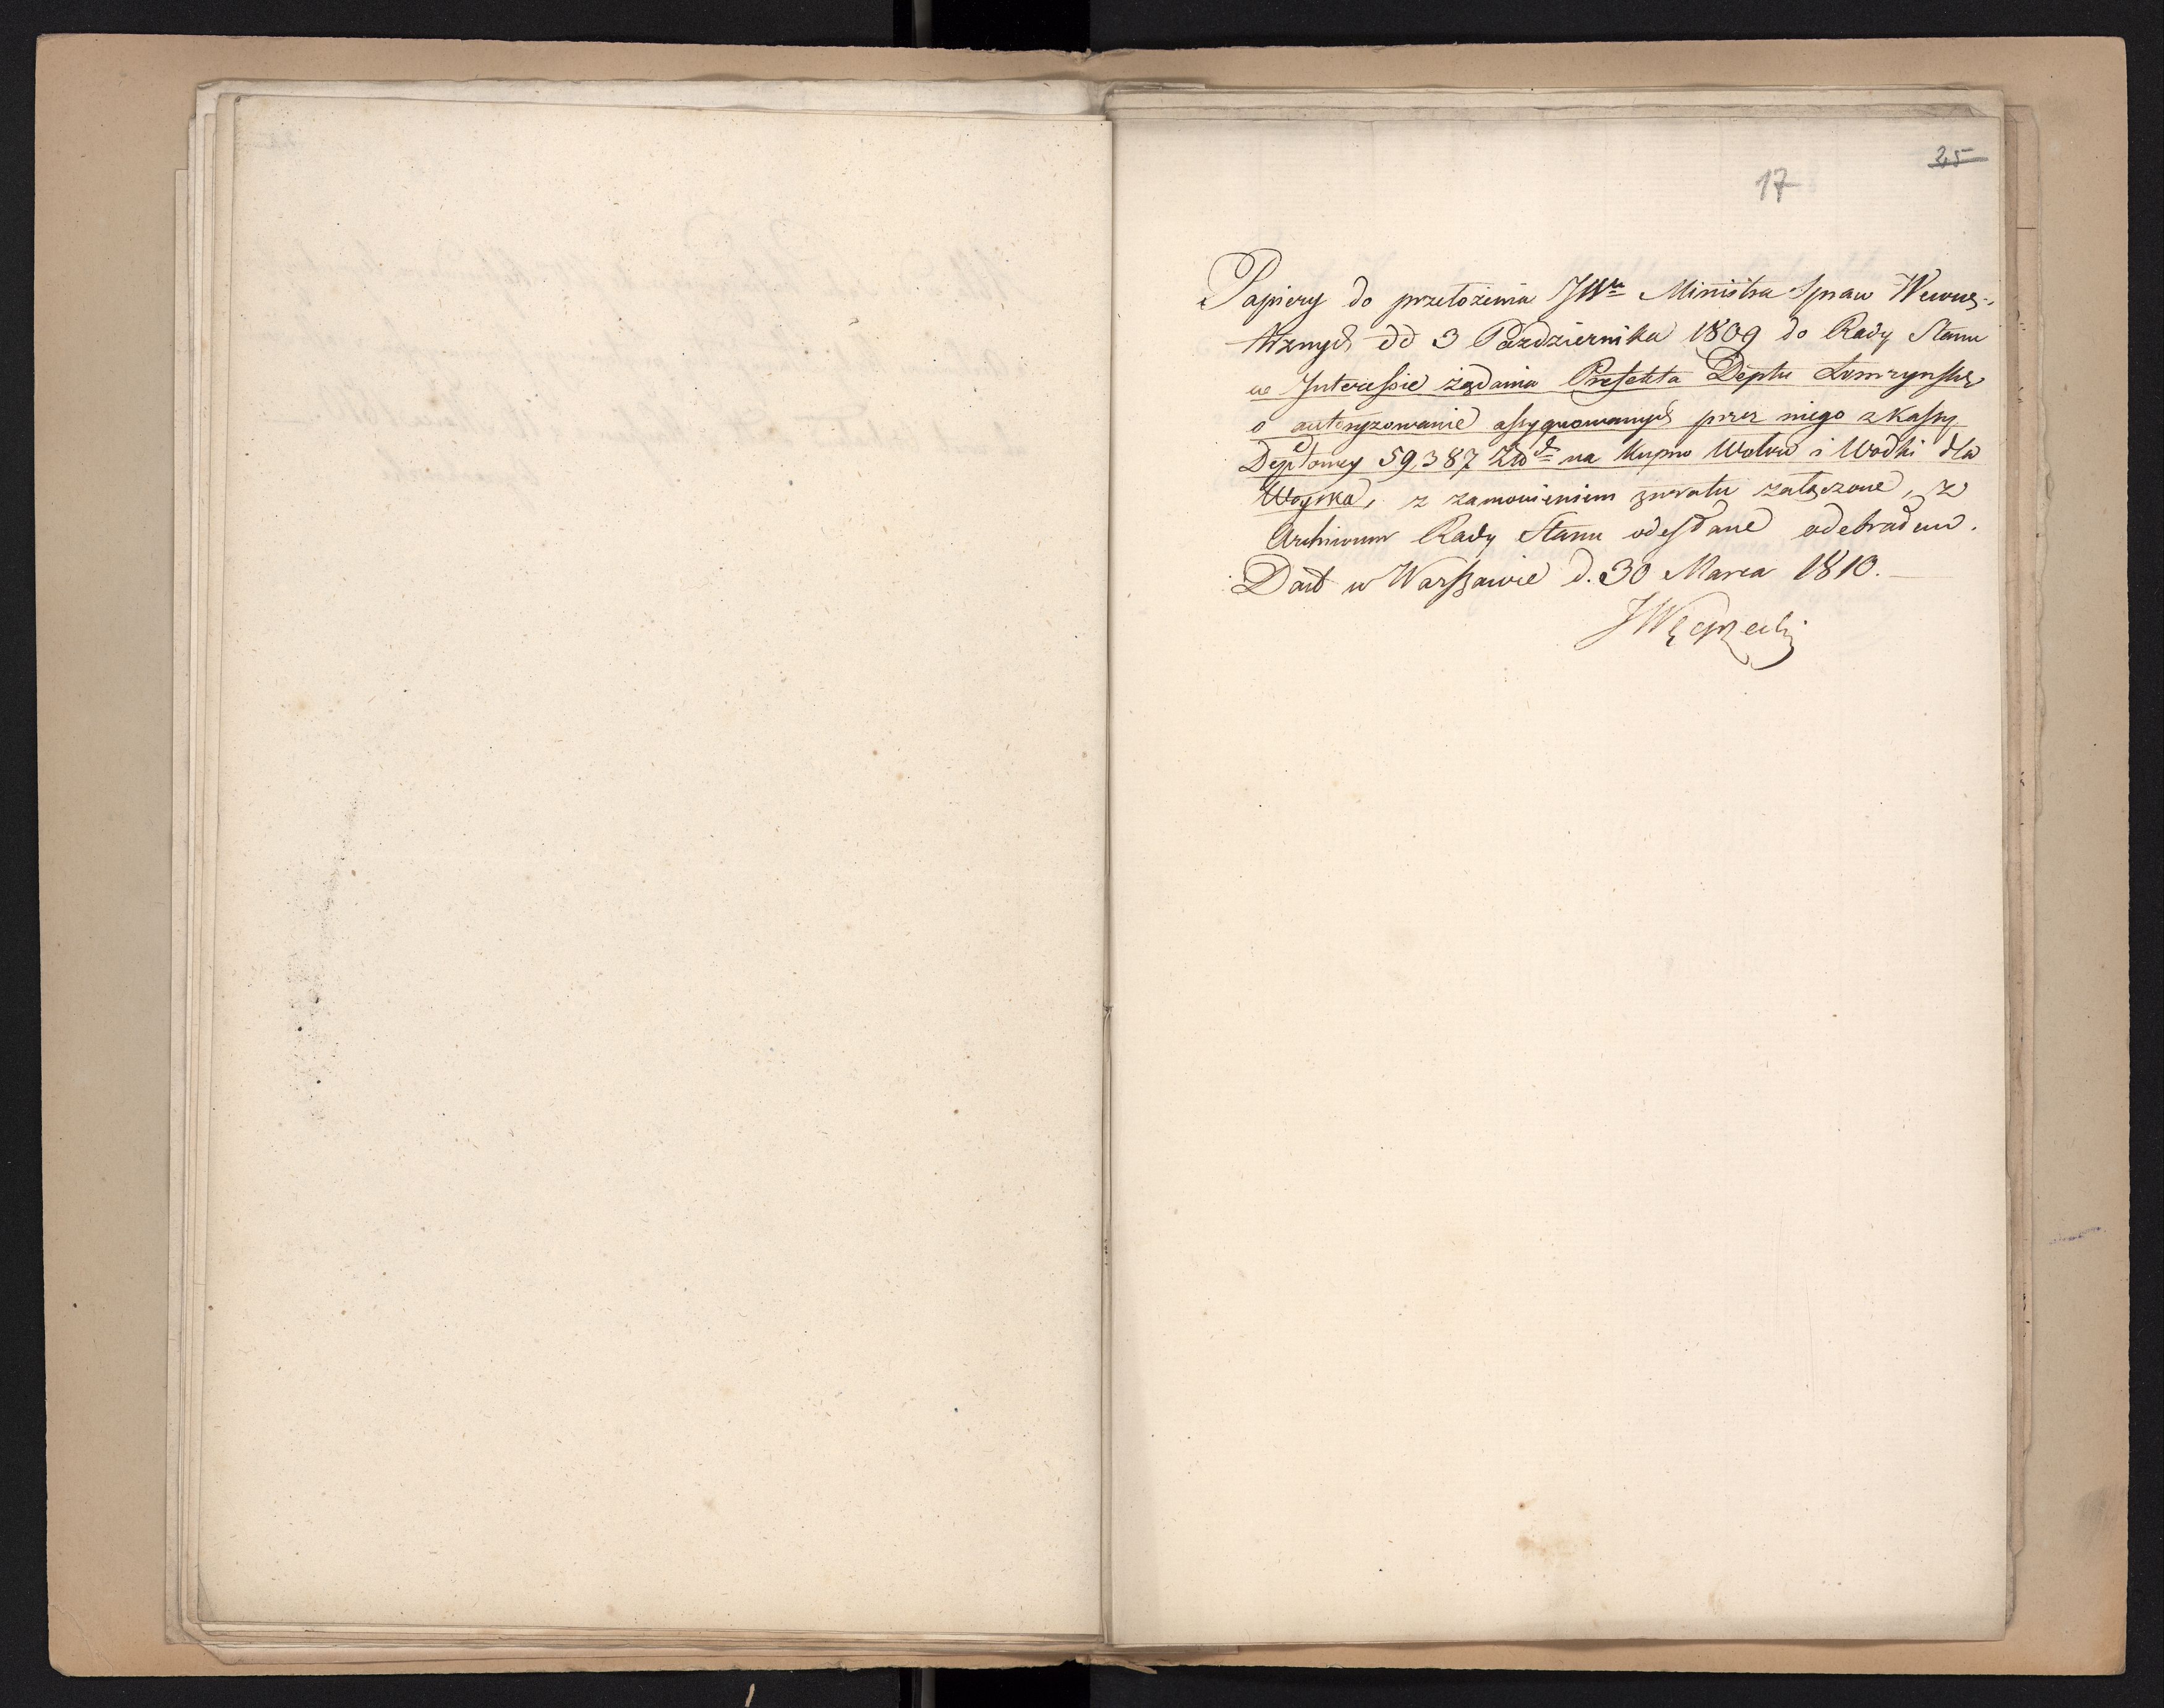 25
17
Papiery do przełożenia JWu Ministra Spraw Wewnę-
trznych dd 3 Października 1809 do Rady Stanu
we Interessie żądania Prefekta Deptu Łomżyńskго
o autoryzowanie assygnowanych przez niego z Kassy
Deptowey 59,387 Złt na kupno Wołów i Wodki dla
Woyska, z zamowieniem zwrotu załączone, z
Archiwum Rady Stanu odesłane odebrałem.
Dań w Warszawie d. 30 Marca 1810.
JWęgrzecki